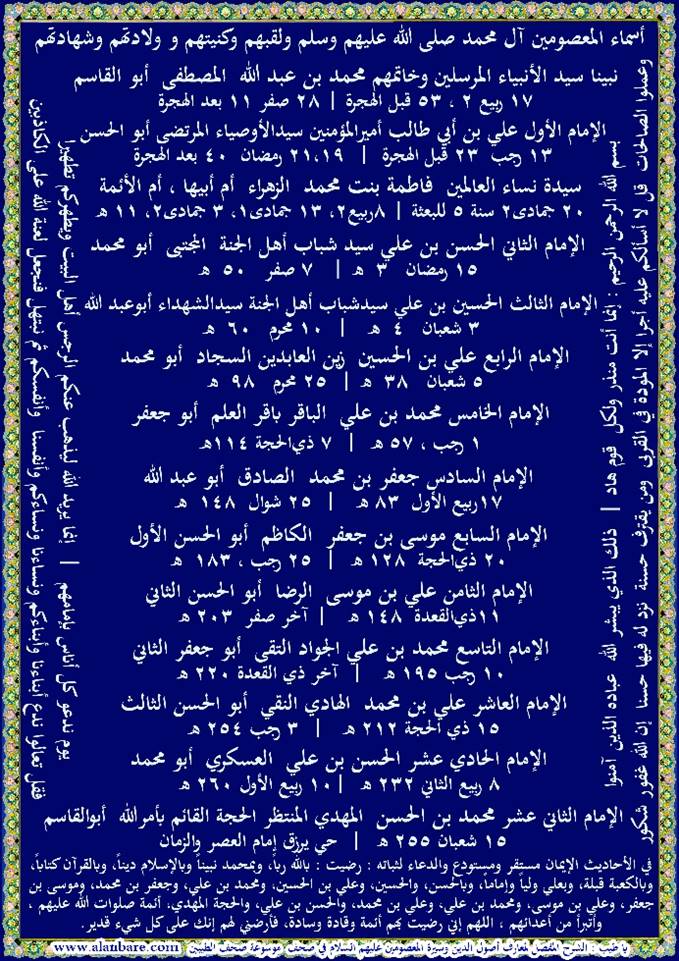 أسماء المعصومين آل محمد صلى الله عليهم وسلم ولقبهم وكنيتهم و ولادتهم وشهادتهم
نبينا سيد الأنبياء المرسلين وخاتمهم محمد بن عبد الله المصطفى أبو القاسم
١٧ ربيع ٢ ، ٥٣ قبل الهجرة | ٢٨ صفر ١١ بعد الهجرة
الإمام الأول علي بن أبي طالب أميرالمؤمنين سيدالأوصياء المرتضى أبو الحسن
١٣ رجب ٢٣ قبل الهجرة | ٢١،١٩ رمضان ٤٠ بعد الهجرة
سيدة نساء العالمين فاطمة بنت محمد الزهراء أم أبيها ، أم الأئمة
٢٠ جمادى٢ سنة ٥ للبعثة | ٨ربيع٢، ١٣ جمادى١، ٣ جمادى٢، ١١ هـ
الإمام الثاني الحسن بن علي سيد شباب أهل الجنة المجتبى أبو محمد
١٥ رمضان ٣ هـ | ٧ صفر ٥٠ هـ
الإمام الثالث الحسين بن علي سيدشباب أهل الجنة سيدالشهداء أبوعبد الله
٣ شعبان ٤ هـ | ١٠ محرم ٦٠ هـ
الإمام الرابع علي بن الحسين زين العابدين السجاد أبو محمد
٥ شعبان ٣٨ هـ | ٢٥ محرم ٩٨ هـ
الإمام الخامس محمد بن علي الباقر باقر العلم أبو جعفر
١ رجب ، ٥٧ هـ | ٧ ذي‌الحجة ١١٤هـ
الإمام السادس جعفر بن محمد الصادق أبو عبد الله
١٧ربيع الأول ٨٣ هـ | ٢٥ شوال ١٤٨ هـ
الإمام السابع موسى بن جعفر الكاظم أبو الحسن الأول
٢٠ ذي‌الحجة ١٢٨ هـ | ٢٥ رجب ، ١٨٣ هـ
الإمام الثامن علي بن موسى الرضا أبو الحسن الثاني
١١ذي‌القعدة ١٤٨ هـ | آخر صفر ٢٠٣ هـ
الإمام التاسع محمد بن علي الجواد التقى أبو جعفر الثاني
١٠ رجب ١٩٥ هـ | آخر ذي القعدة ٢٢٠ هـ
الإمام العاشر علي بن محمد الهادي النقي أبو الحسن الثالث
١٥ ذي الحجة ٢١٢ هـ | ٣ رجب ٢٥٤ هـ
الإمام الحادي عشر الحسن بن علي العسكري أبو محمد
٨ ربيع الثاني ٢٣٢ هـ | ١٠ ربيع الأول ٢٦٠ هـ
الإمام الثاني عشر محمد بن الحسن المهدي المنتظر الحجة القائم بأمرالله أبوالقاسم
١٥ شعبان ٢٥٥ هـ | حي يرزق إمام العصر والزمان
في الأحاديث الإيمان مستقر ومستودع والدعاء لثباته : رضيت : بالله رباً، وبمحمد نبيناً وبالإسلام ديناً، وبالقرآن كتاباً،
وبالكعبة قبلة، وبعلي ولياً وإماماً، وبالحسن، والحسين، وعلي بن الحسين، ومحمد بن علي، وجعفر بن محمد، وموسى بن
جعفر، وعلي بن موسى، ومحمد بن علي، وعلي بن محمد، والحسن بن علي، والحجة المهدي، أئمة صلوات الله عليهم ،
وأتبرأ من أعدائهم ، اللهم إني رضيت بهم أئمة وقادة وسادة، فأرضني لهم إنك على كل شيء قدير.
بسم الله الرحمن الرحيم : إنما أنت منذر ولكل قوم هاد | ذلك الذي يبشر الله عباده الذين آمنوا
وعملوا الصالحات قل لا أسألكم عليه أجرا إلا المودة في القربى ومن يقترف حسنة نزد له فيها حسنا إن الله غفور شكور
يوم ندعو كل أناس بإمامهم | إنما يريد الله ليذهب عنكم الرجس أهل البيت ويطهركم تطهيرا
فقل تعالوا ندع أبناءنا وأبناءكم ونساءنا ونساءكم وأنفسنا وأنفسكم ثم نبتهل فنجعل لعنة الله على الكاذبين
يا طيب : الشرح المفصل لمعارف أصول الدين وسيرة المعصومين عليهم السلام في صحف موسوعة صحف الطيبين www.alanbare.com